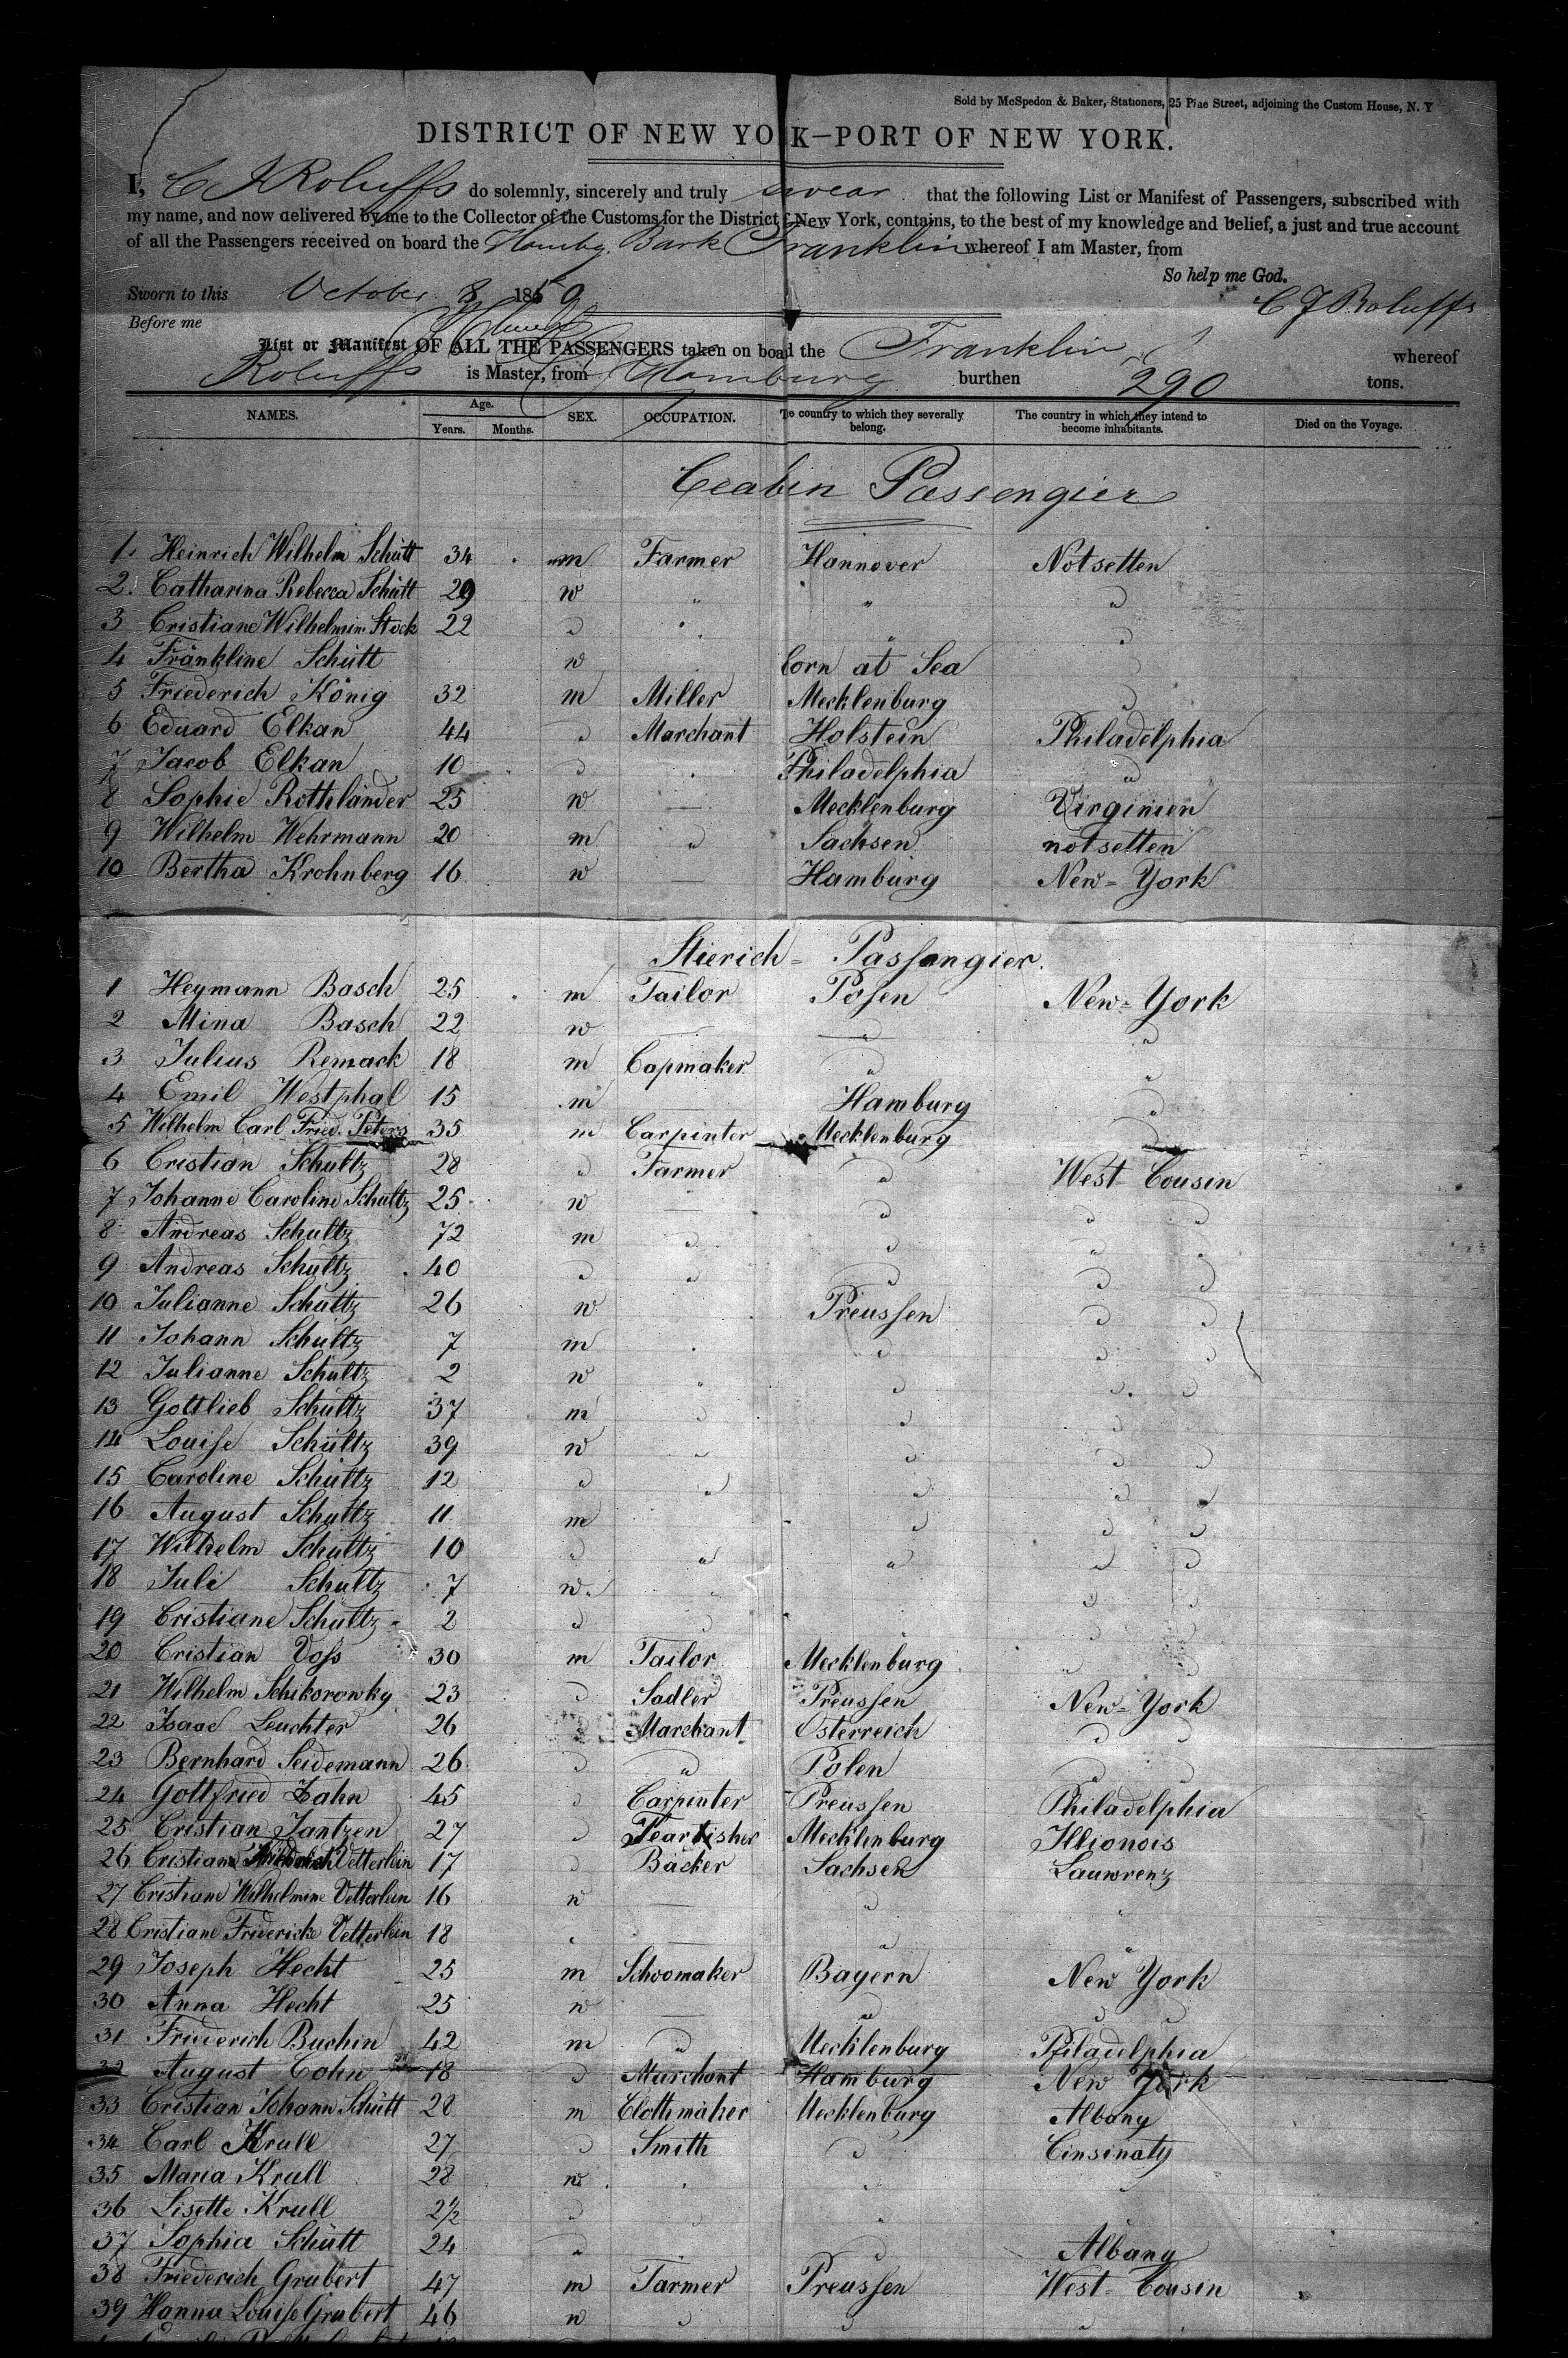 Sold by McSpedon & Baker, Stationers, 25 Pine Street, adjoining the Custom House, N. Y
DISTRICT OF NEW YORK—PORT OF NEW YORK.
I, C J Roluffs do solemnly, sincerely and truly swear that the following List or Manifest of Passengers, subscribed with
my name, and now delivered by me to the Collector of the Customs for the District of New York, contains, to the best of my knowledge and belief, a just and true account
of all the Passengers received on board the Hambg. Bark Franklin whereof I am Master, from
So help me God.
Sworn to this October 8 1859 C J Roluffs
Before me
List or Manifest OF ALL THE PASSENGERS taken on boad the Franklin whereof
Roluffs is Master, from Hamburg burthen 290 tons.
NAMES. Age. Years. Months. SEX. OCCUPATION. The country to which they severally belong. The country in which they intend to become inhabitants. Died on the Voyage.
Ceabin Passengier
1. Heinrich Wilhelm Schütt 34 m Farmer Hannover Notsetten
2. Catharina Rebecca Schütt 29 w " " "
3 Cristiane Wilhelmin Stock 22 " " " "
4 Fränkline Schütt w born at Sea "
5 Friederich König 32 m Miller Mecklenburg "
6 Eduard Elkan 44 " Marchant Holstein Philadelphia
7 Jacob Elkan 10 " Philadelphia "
8 Sophie Rothländer 25 w — Mecklenburg Virginien
9 Wilhelm Wehrmann 20 m " Sachsen notsetten
10 Bertha Krohnberg 16 w — Hamburg New-York
Stierich-Passengier.
1 Heymann Basch 25 m Tailor Posen New-York
2 Mina Basch 22 w — " "
3 Julius Remack 18 m Capmaker " "
4 Emil Westphal 15 m — Hamburg "
5 Wilhelm Carl Fried. Peters 35 m Carpinter Mecklenburg "
6 Cristian Schultz 28 " Farmer " West Cousin
7 Johanne Caroline Schultz 25 w — " " "
8 Andreas Schultz 72 m " " " "
9 Andreas Schultz 40 " " " " "
10 Julianne Schültz 26 w Preussen " "
11 Johann Schültz 7 m " " "
12 Julianne Schültz 2 w " " " "
13 Gottlieb Schültz 37 m " " " "
14 Louise Schültz 39 w " " " "
15 Caroline Schültz 12 " " " " "
16 August Schultz 11 m " " "
17 Wilhelm Schültz 10 " " " " "
18 Juli Schultz 7 w " " "
19 Cristiane Schültz 2 " " " "
20 Cristian Voss 30 m Tailor Mecklenburg " "
21 Wilhelm Schikorowky 23 " Sadler Preussen New-York
22 Isaac Leuchter 26 " Marchant Osterreich " "
23 Bernhard Seidemann 26 " " Polen " "
24 Gottfried Zahn 45 " Carpinter Preussen Philadelphia
25 Cristian Jantzen 27 " Mecklenburg Illionois
26 Cristian Vetterlein 17 " Bäcker Sachsen Lauwrenz
27 Cristiane Wilhelmine Vetterlein 16 w — " "
28 Cristiane Fridericke Vetterlein 18 " — " "
29 Joseph Hecht 25 m Schoomaker Bayern New York
30 Anna Hecht 25 w — " " "
31 Friederich Buchin 42 m " Mecklenburg Philadelphia
32 August Cohn 18 " Marchant Hamburg New York
33 Cristian Johann Schütt 28 m Clothmaker Mecklenburg Albany
34 Carl Krull 27 " Smith " Cinsinaty
35 Maria Krull 28 w " " "
36 Lisette Krull 2½ " " " "
37 Sophia Schütt 24 " " Albany
38 Friederich Grubert 47 m Farmer Preussen West-Cousin
39 Hanna Louise Grubert 46 w " " "